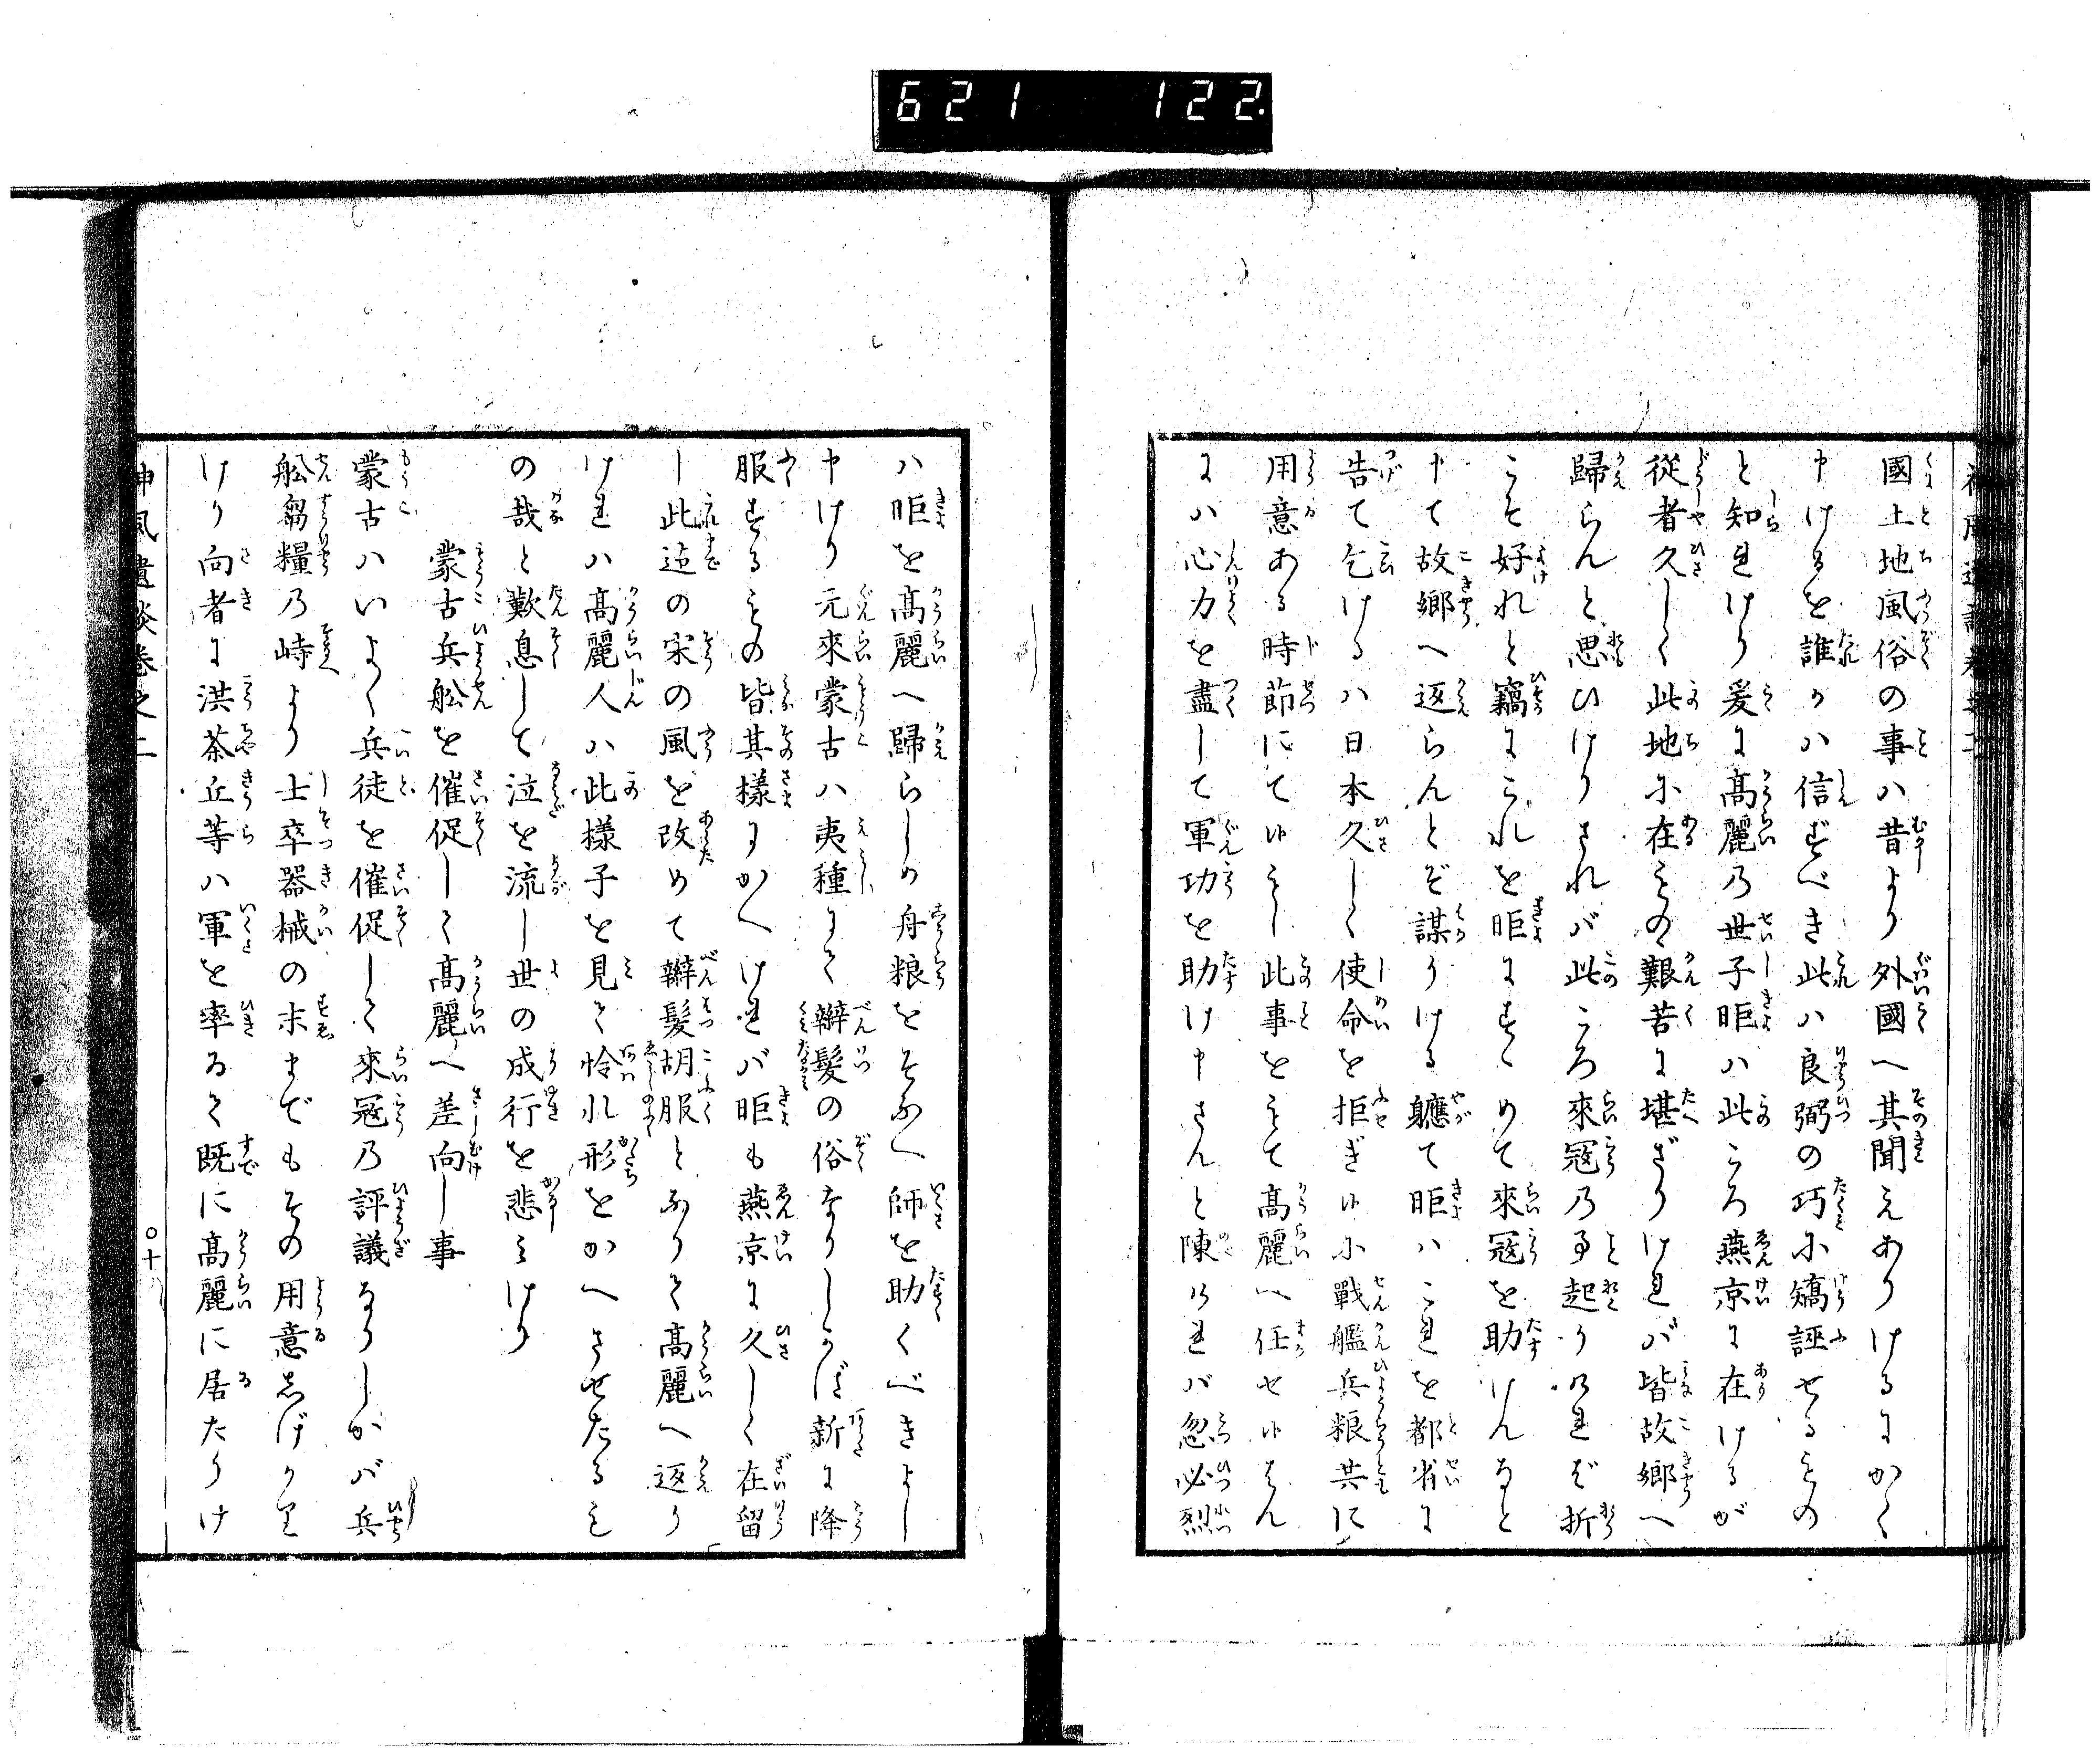 621 122.
國土地風俗の事ハ昔より外國へ其聞えありけるにかく
申けるを誰かハ信ずべき此ハ良弼の巧に矯誣せるもの
と知れけり爰に高麗乃世子㫮ハ此ころ燕京に在けるが
從者久しく此地に在もの艱苦に堪ざりければ皆故郷へ
歸らんと思ひけりされバ此ころ來冦乃事起りければ折
こそ好れと竊にこれを㫮にすゝめて來冦を助けんなと
申て故郷へ返らんとぞ謀りける軈て㫮ハこれを都省に
告て乞けるハ日本久しく使命を拒ぎ候に戰艦兵粮共に
用意ある時節にて候もし此事をもて高麗へ任せ候はん
にハ心力を盡して軍功を助け申さんと陳ければ忽必烈
ハ㫮を高麗へ歸らしめ舟粮をそなへ師を助くべきよし
申けり元來蒙古ハ夷種にて辮髮の俗なりしかば新に降
服するもの皆其樣にかへければ㫮も燕京に久しく在留
し此迄の宋の風を改めて辮髮胡服となりて高麗へ返り
けれハ高麗人ハ此樣子を見て怜れ形をかへさせたるも
の哉と歎息して泣を流し世の成行を悲みけり
蒙古兵舩を催促して高麗へ差向し事
蒙古ハいよく兵徒を催促して來冦乃評議なりしかバ兵
舩芻糧乃峙より士卒器械の末までもその用意しげかり
けり向者に洪茶丘等ハ軍を率ゐて既に高麗に居たりけ
神風遺談卷之二
十